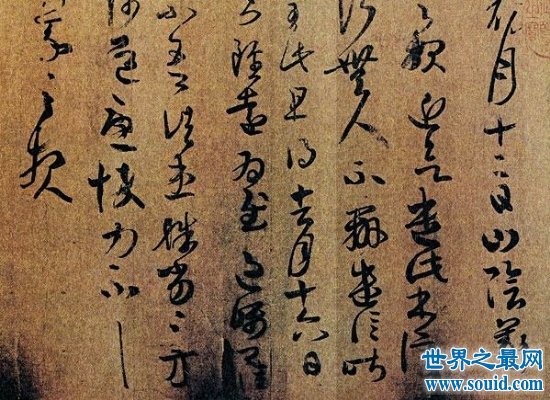 初月十二日山陰羲
之報近欲遣此書停
行無人不辦遣信昨
至此且得去月十六日
書雖遠為慰過囑卿
佳不吾諸患殊劣殊劣方
涉道憂悴力不一一
羲之報
世界之最网
www.souid.com